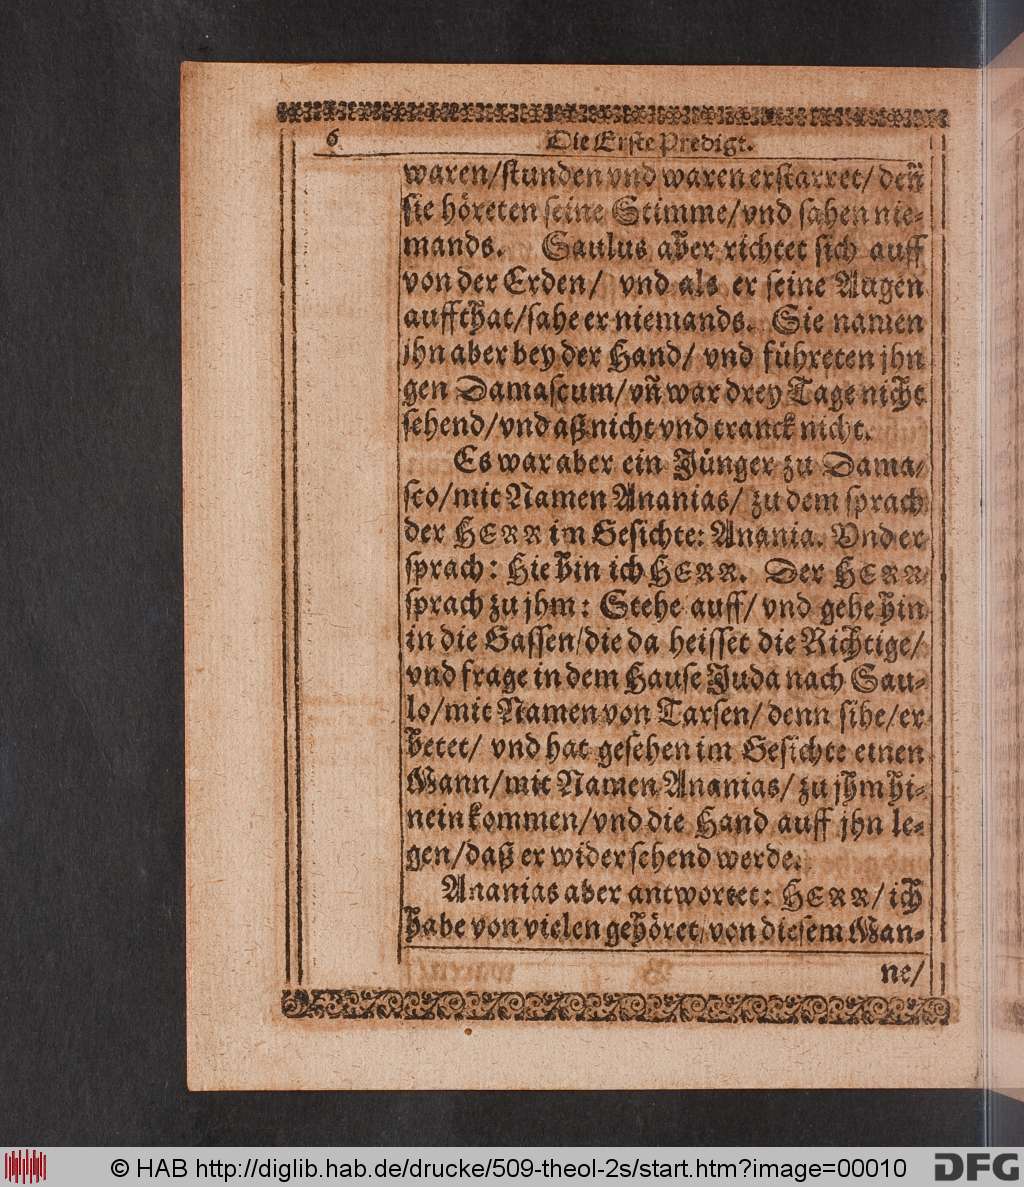 6 Die Erste Predigt.
waren/stunden vnd waren erstarret/ deñ
sie höreten seine Stimme/vnd sahen nie-
mands. Saulus aber richtet sich auff
von der Erden/ vnd als er seine Augen
auffthat/sahe er niemands. Sie namen
jhn aber bey der Hand/ vnd führeten jhn
gen Damascum/vñ war drey Tage nicht
sehend/vnd aß nicht vnd tranck nicht.
Es war aber ein Jünger zu Dama-
sco/mit Namen Ananias/ zu dem sprach
der HERR im Gesichte: Anania. Vnd er
sprach: Hie bin ich HERR. Der HERR
sprach zu jhm: Stehe auff/ vnd gehe hin
in die Gassen/die da heisset die Richtige/
vnd frage in dem Hause Juda nach Sau-
lo/mit Namen von Tarsen/ denn sihe/er
betet/ vnd hat gesehen im Gesichte einen
Mann/mit Namen Ananias/ zu jhm hi-
nein kommen/vnd die Hand auff jhn le-
gen/daß er wider sehend werde.
Ananias aber antwortet: HERR/ ich
habe von vielen gehöret/von diesem Man-
ne/
© HAB http://diglib.hab.de/drucke/509-theol-2s/start.htm?image=00010
DFG